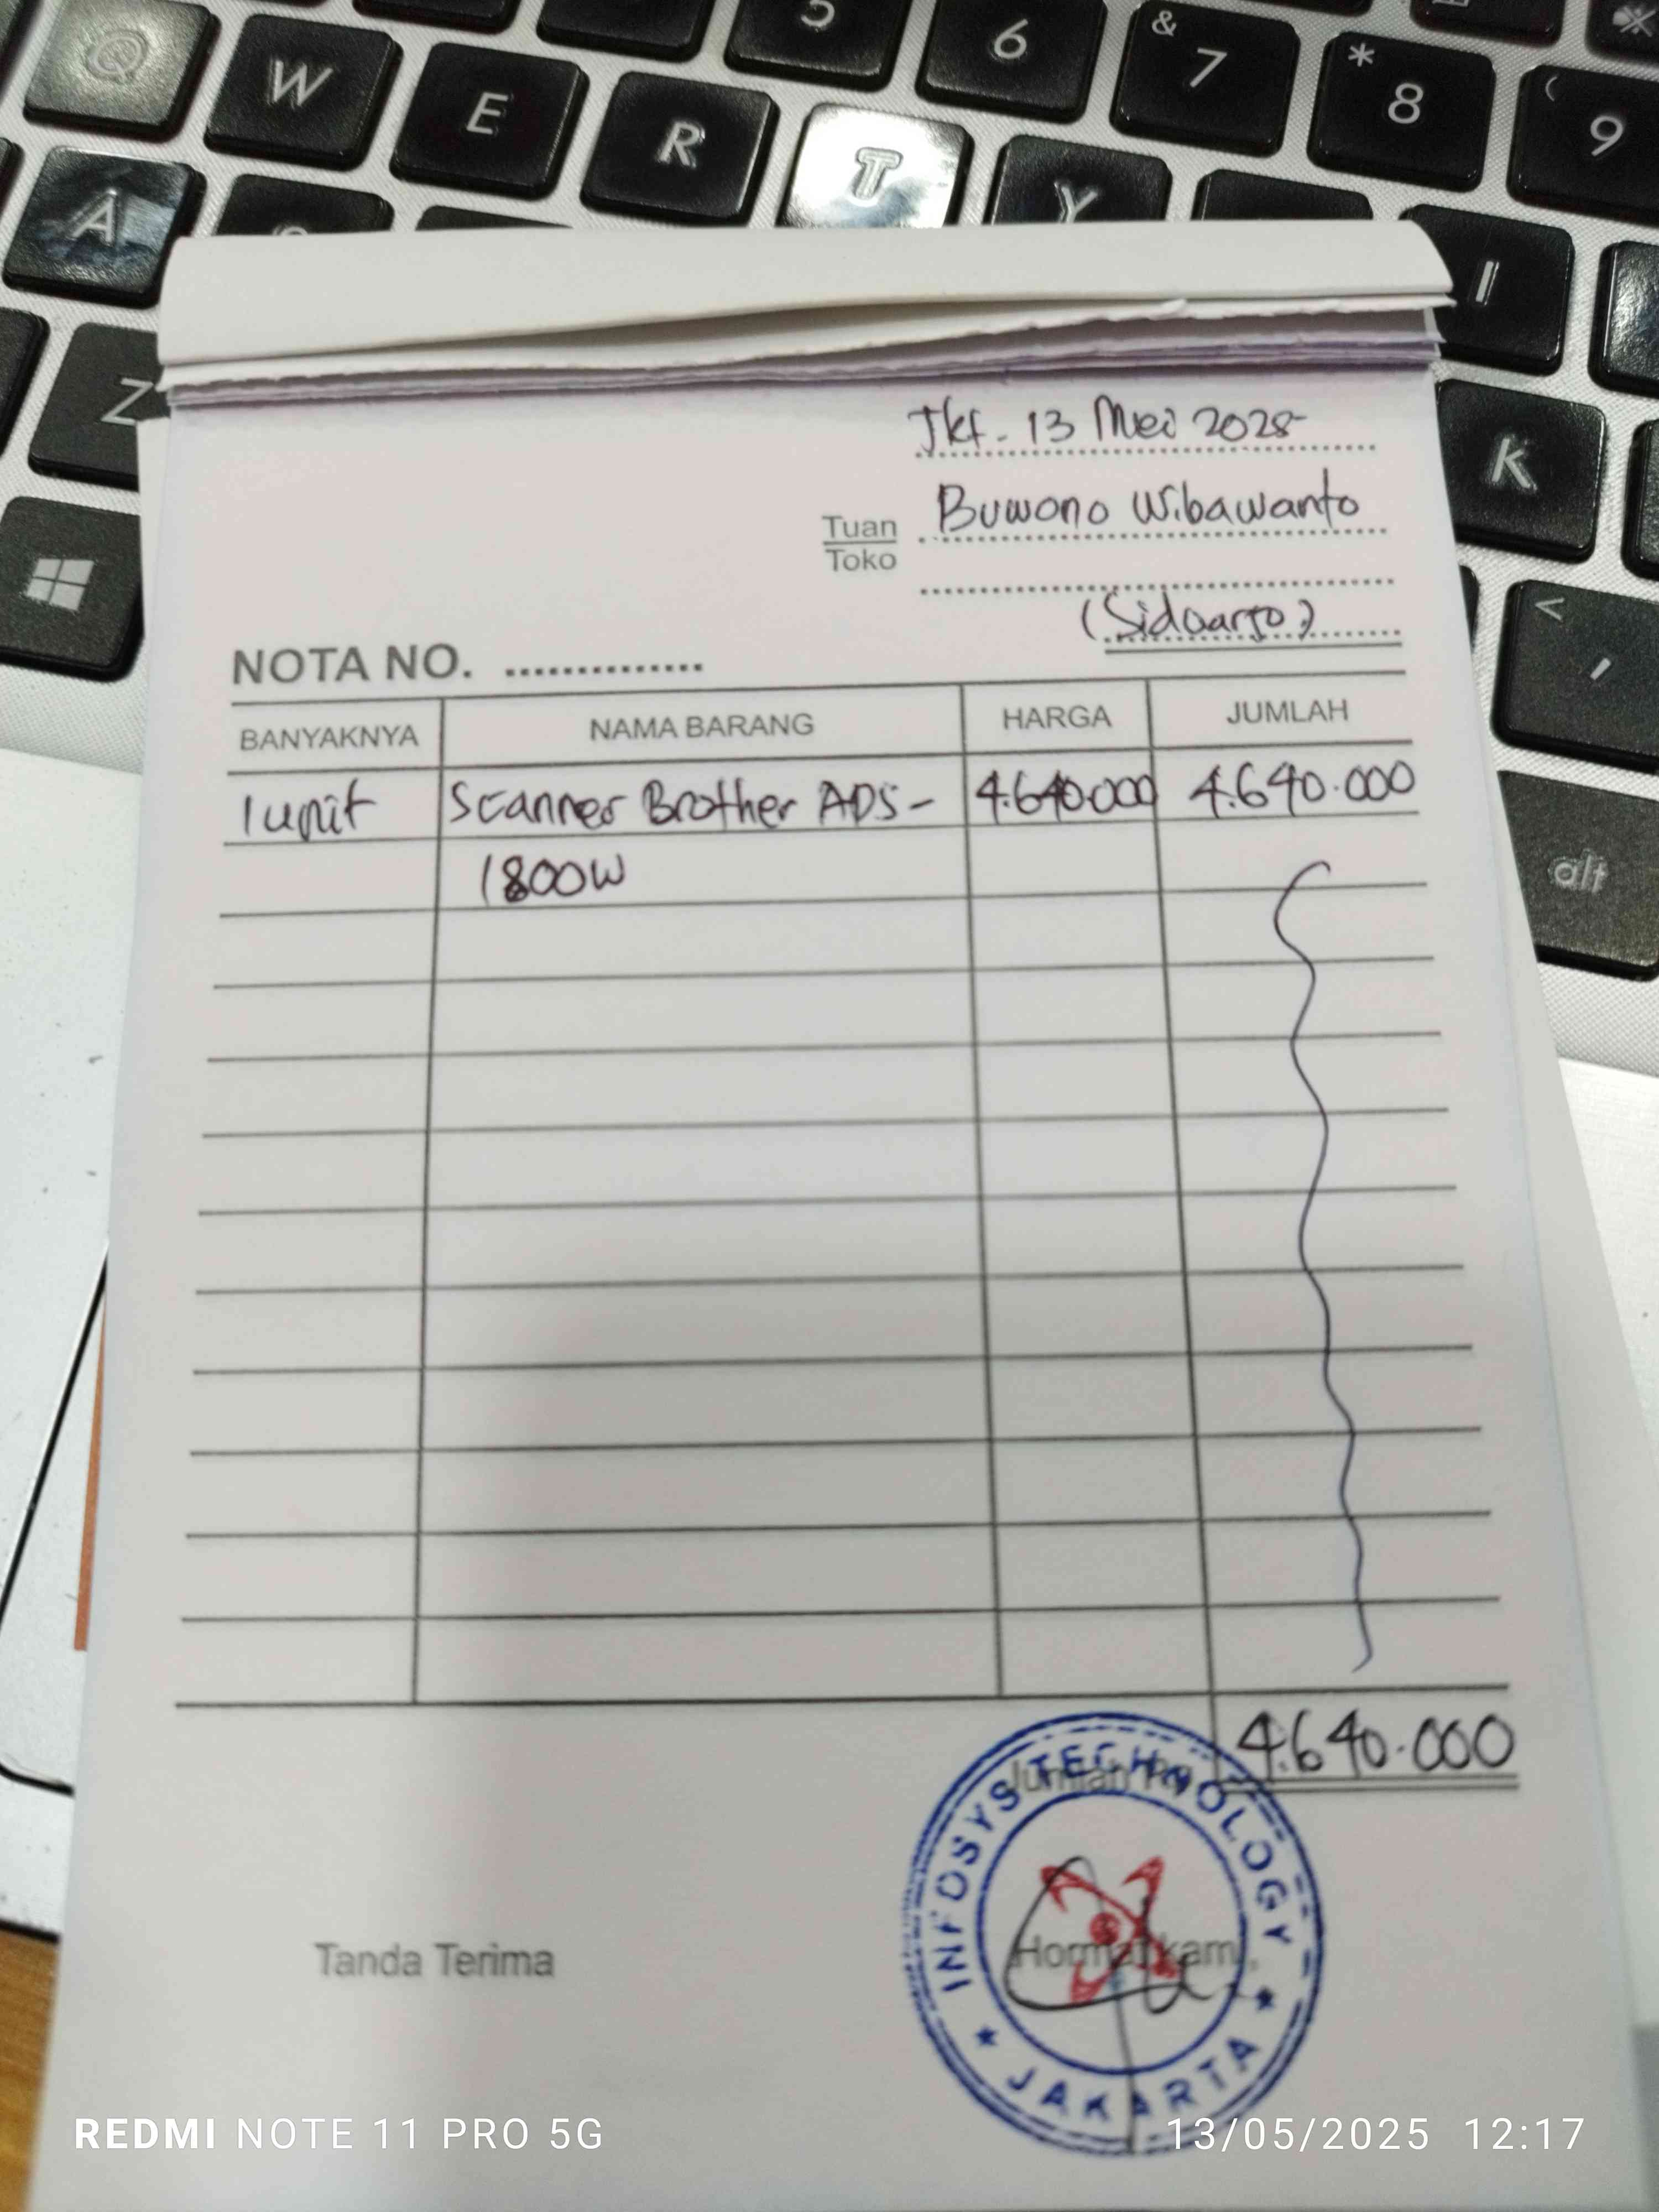 Q W E R T Y
5 6 & 7 * 8 ( 9
A
I
Z
K
<
,
alt
Jkt. 13 Mei 2025
Tuan Buwono Wibawanto
Toko
(Sidoarjo)
NOTA NO. ..............
BANYAKNYA NAMA BARANG HARGA JUMLAH
1 unit Scanner Brother ADS- 4.640.000 4.640.000
1800W
Jumlah Rp. 4.640.000
INFOSYS TECHNOLOGY
Tanda Terima Hormat kami,
★ JAKARTA ★
REDMI NOTE 11 PRO 5G 13/05/2025 12:17